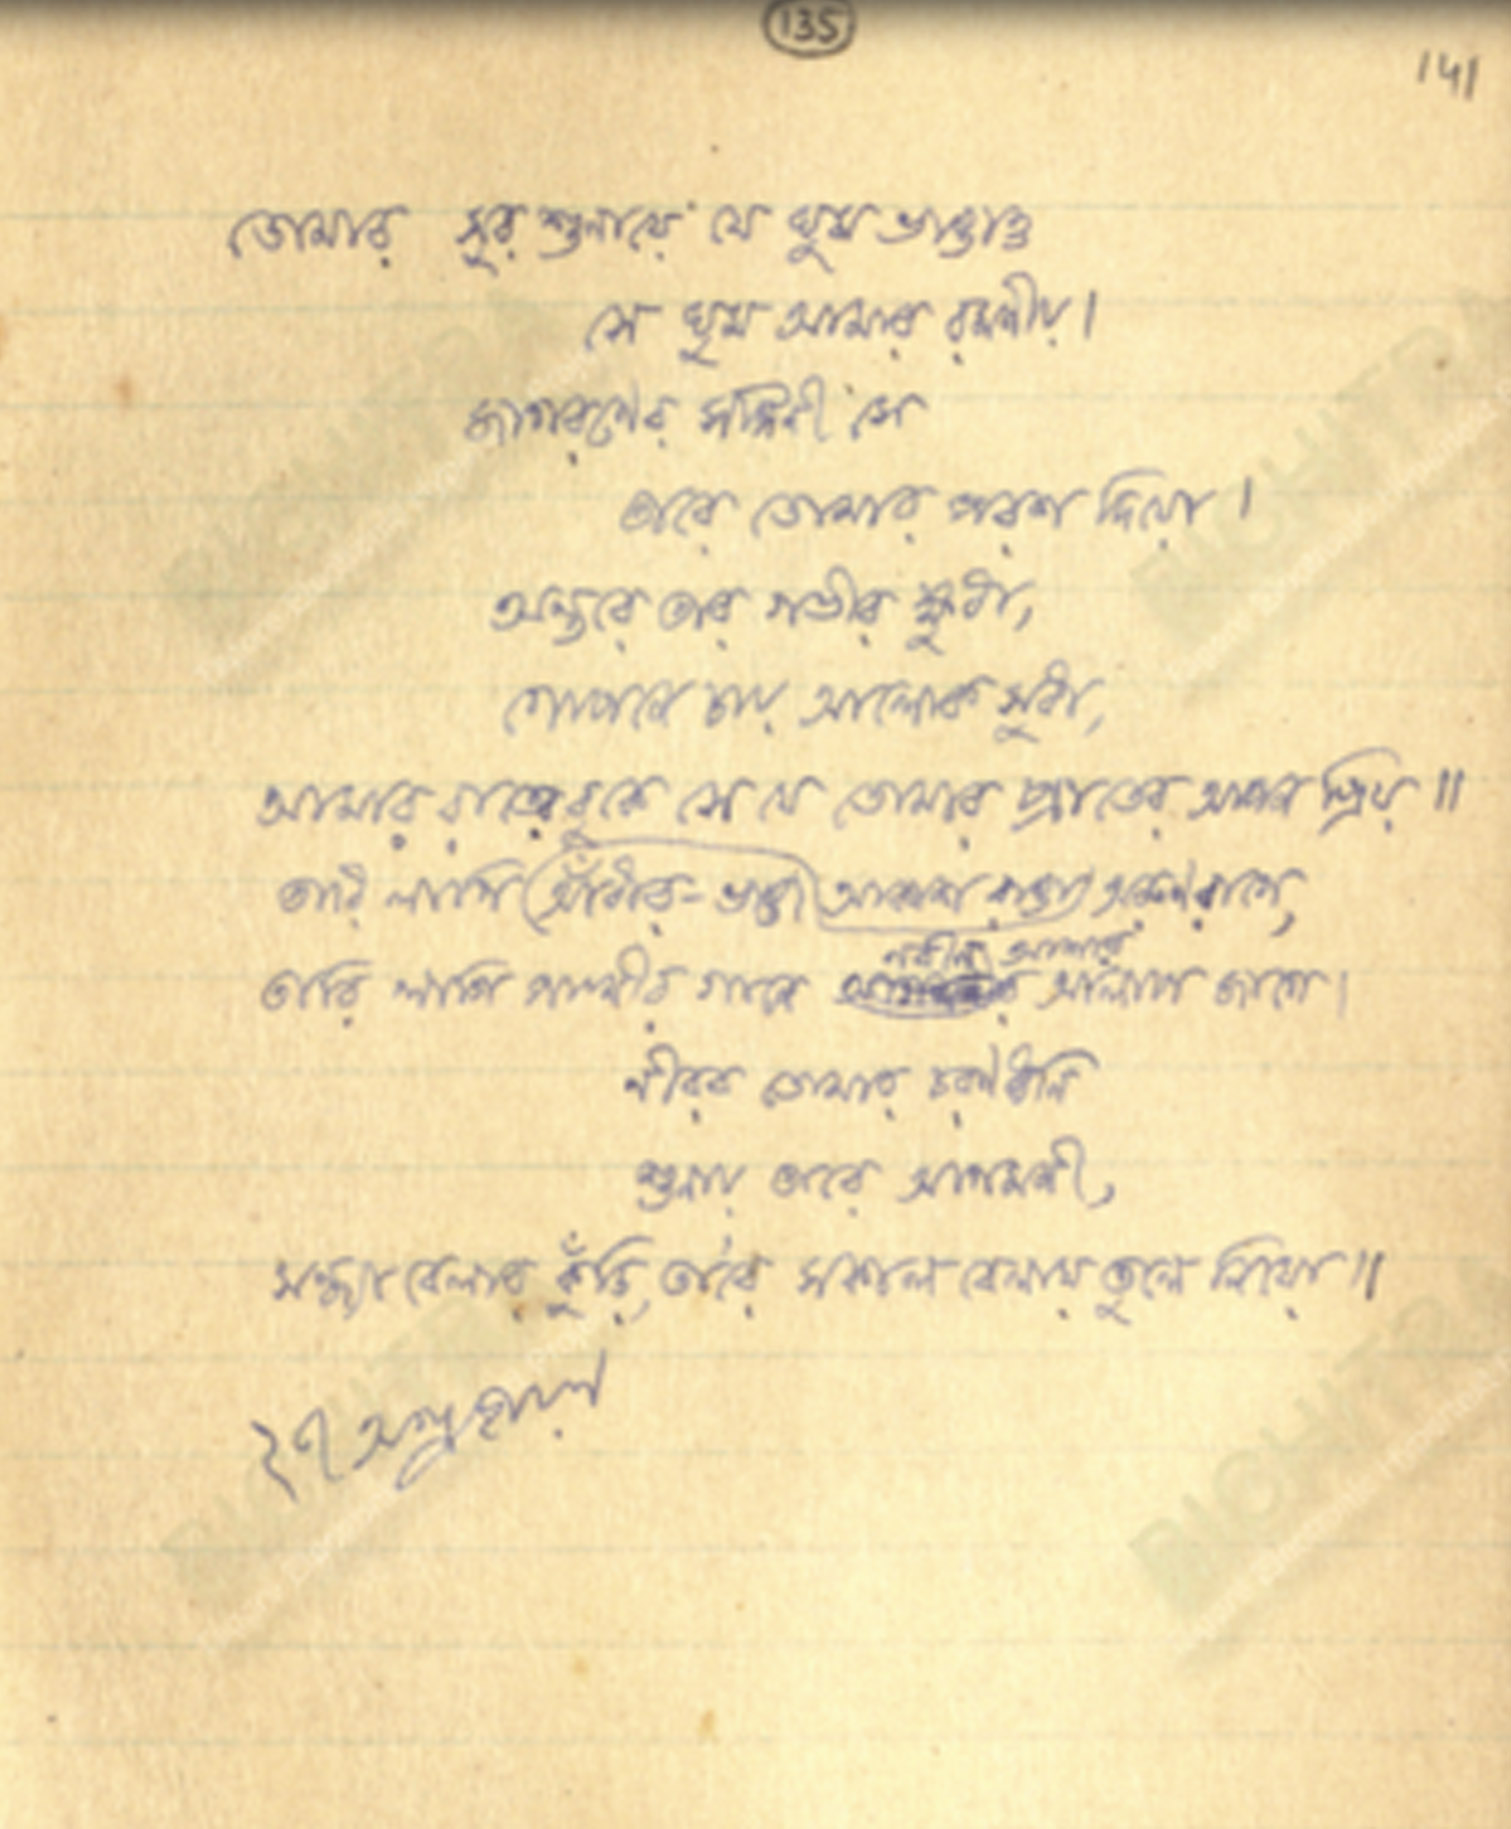 135
141
তোমার সুর শুনায়ে যে ঘুম ভাঙাও
সে ঘুম আমার রমণীয়।
জাগরণের সঙ্গিনী সে
তারে তোমার পরশ দিয়ো।
অন্তরে তার গভীর ক্ষুধা,
গোপনে চায় আলোক সুধা,
আমার রাতের বুকে সে যে তোমার প্রাতের আপন প্রিয়॥
তারি লাগি আঁধার-ভাঙা আকাশ রাঙা অরুণ রাগে,
নবীন আশার
তারি লাগি পাখীর গানে আলাপ জাগে।
নীরব তোমার চরণধ্বনি
শুনায় তারে আগমনী,
সন্ধ্যাবেলার কুঁড়ি, তারে সকাল বেলায় তুলে নিয়ো॥
২৭ অগ্রহায়ণ